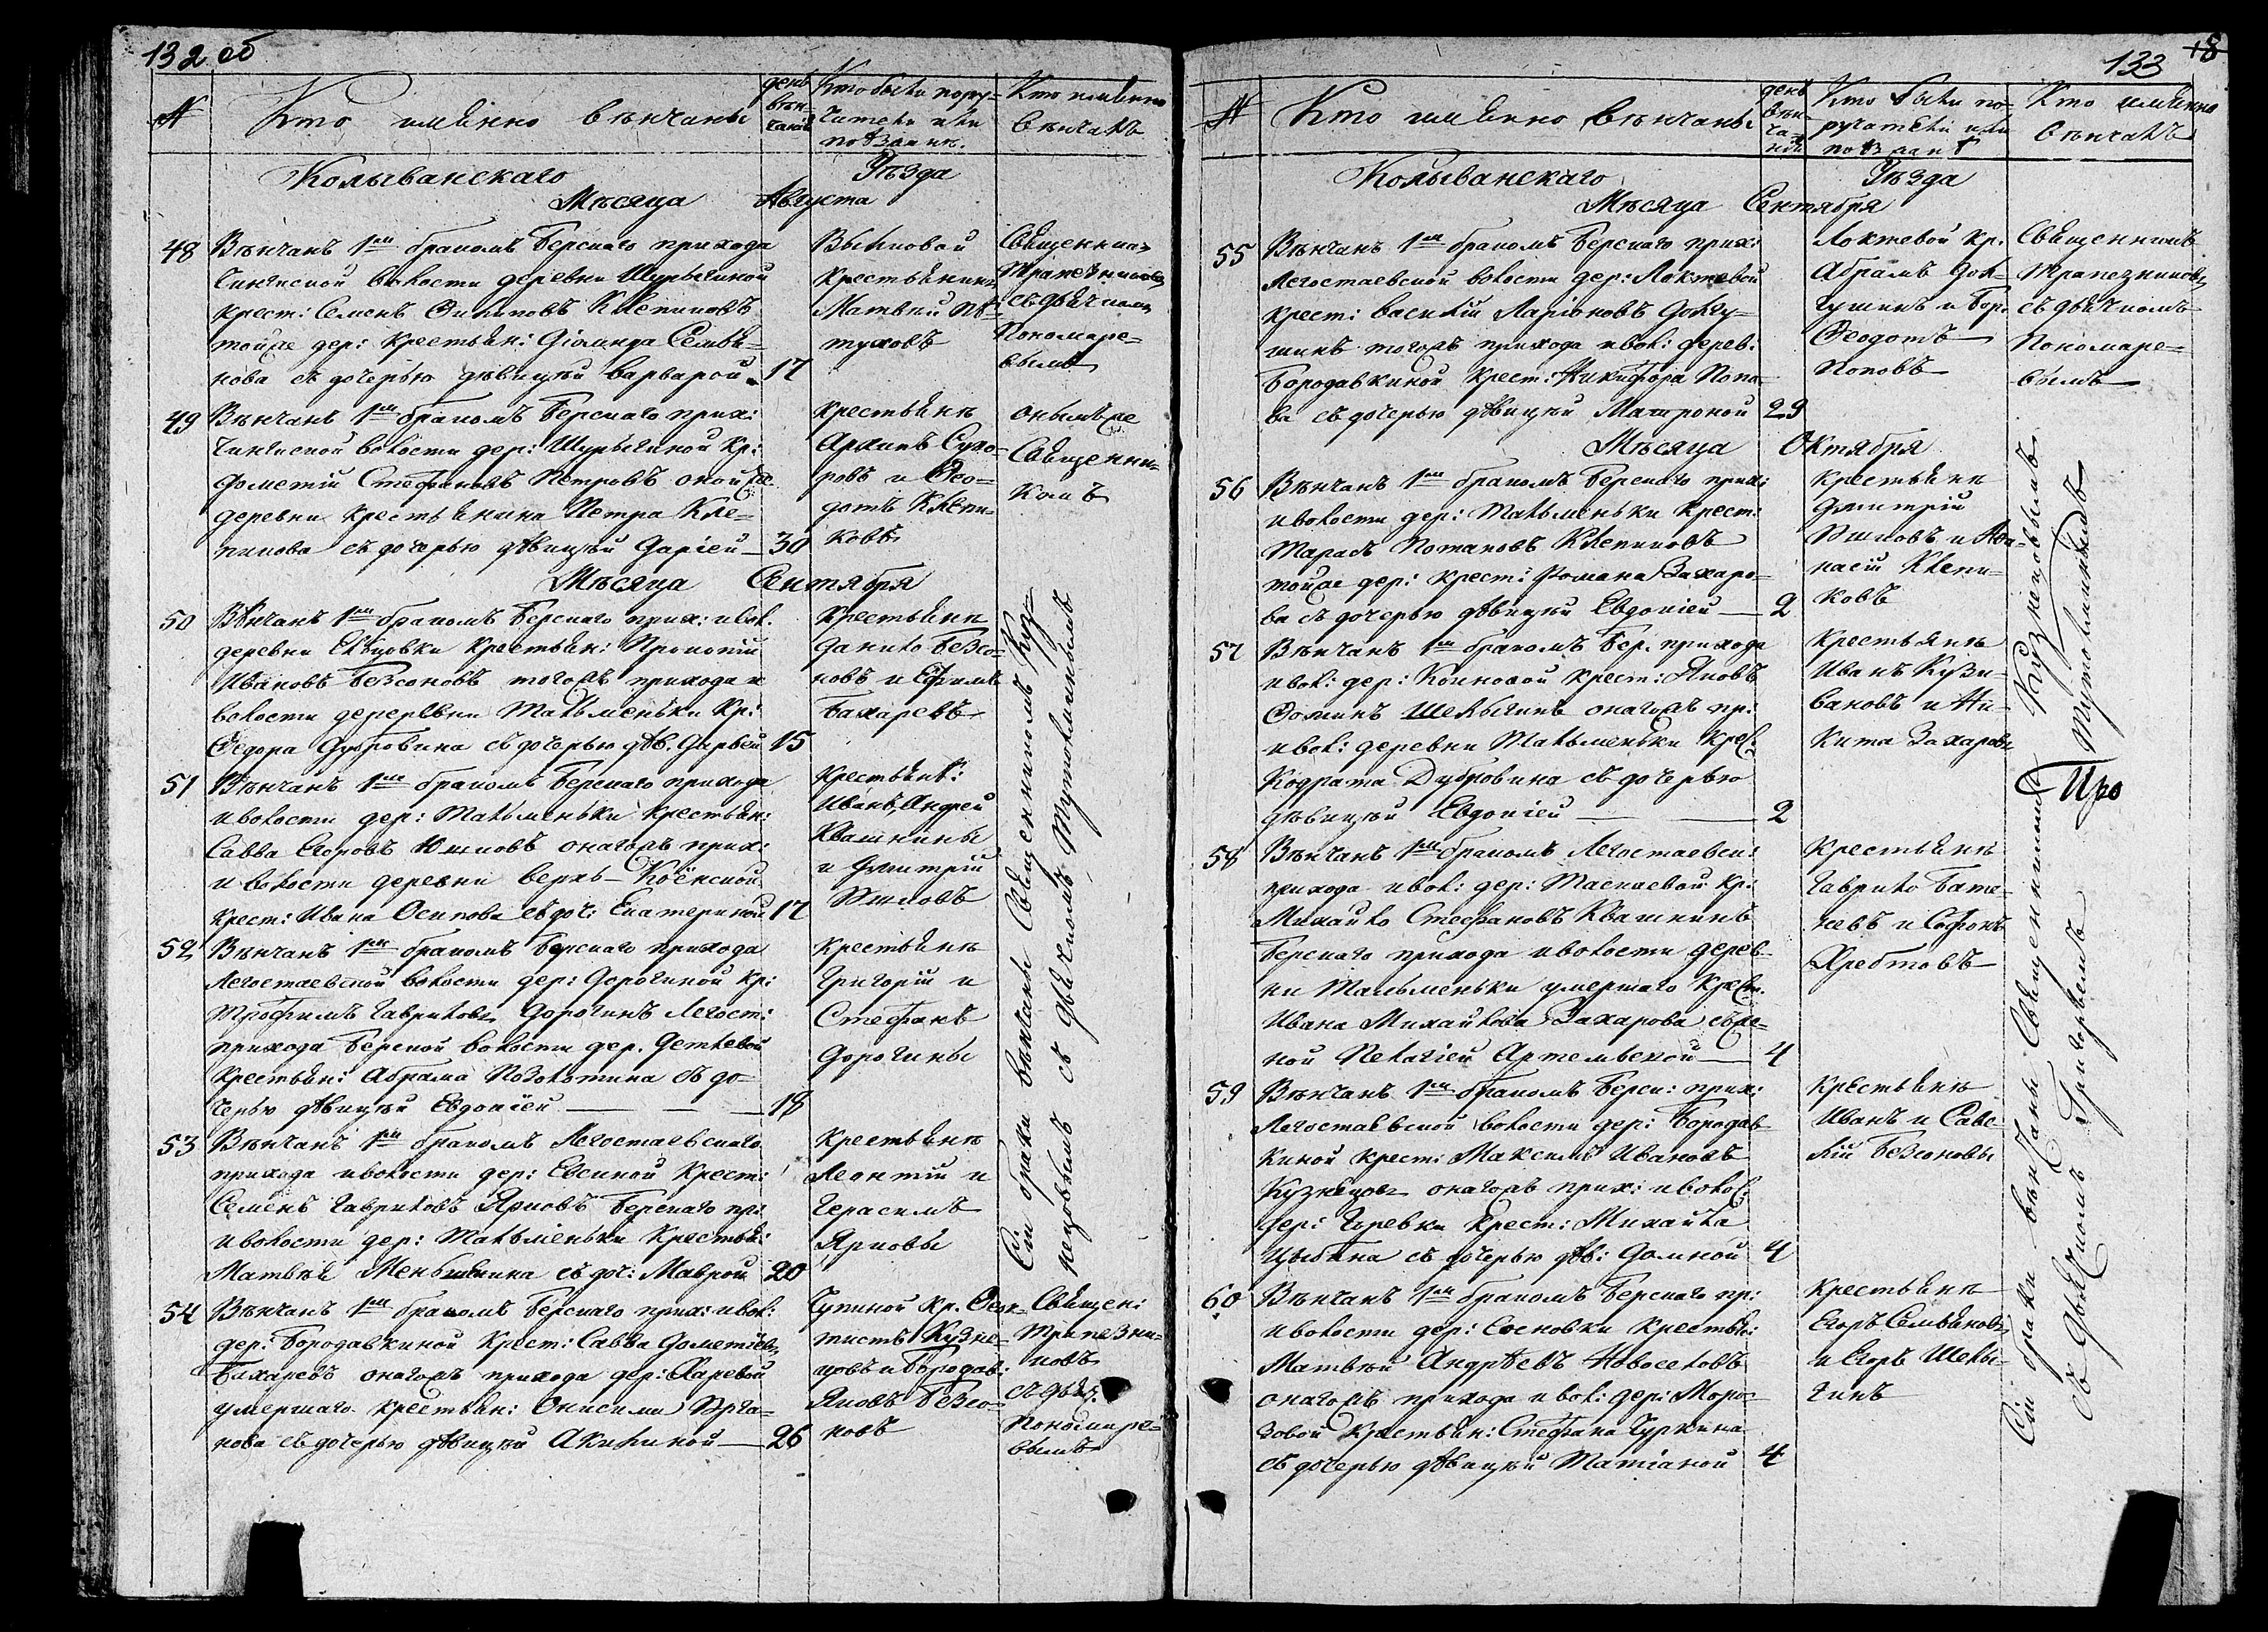 132 об
№
Кто имянно венчаны
день вен-чаній
Кто были пору-
чители или
по взаим.
Кто имянно
венчалъ
Колыванскаго Уѣзда
Мѣсяца Августа
48 Вѣнчанъ 1мъ бракомъ Берскаго прихода
Чингиской волости деревни Шурыгиной
крест: Семенъ Филиповъ Клепиковъ
тойже дер: крестьян:
нова съ дочерью дѣвицѣй Варварой 17
крестьянинъ
Матвей Пѣ-
туховъ
Священник
Трапезниковы
съ дьячкомъ
Пономаре-
вымъ
49 Вѣнчанъ 1мъ бракомъ Берскаго прих:
Чингиской волости дер: Шурыгиной кр:
Дометій Стефановъ Петровъ онойже
деревни крестьянина Петра Кле-
пикова съ дочерью дѣвицѣй Даріей 30
крестьяне
Архипъ Сухо-
ровъ и Фео-
дотъ Клепи-
ковъ
онымже
Священни-
комъ
Мѣсяца Сентября
50 Вѣнчанъ 1мъ бракомъ Берскаго прих: и вол.
деревни Елбцовки крестьян: Прокопій
Ивановъ Безсоновъ тогожъ прихода и
волости дереревни Тальменьки Кр:
Федора Дубровина съ дочерью дѣв. Дарьей 15
Крестьяне
Данило Безсо-
новъ и Ефимъ
Бахаревъ
51 Вѣнчанъ 1мъ бракомъ Берскаго прихода
и волости дер: Тальменьки крестьян:
Савва Егоровъ Юшковъ онагожъ прих:
и волости деревни Верхъ-Коёнской
Крест: Ивана Осипова съ доч: Екатериной 17
Крестьяне:
Иванъ, Андрей
Квашнины
и Дмитрій
Юшковъ
52 Вѣнчанъ 1мъ бракомъ Берскаго прихода
Легостаевской волости дер: Дорогиной Кр:
Трофимъ Гавриловъ Дорогинъ Легост:
прихода Берской волости дер. Деткевой
крестьян: Абрама Позолотина съ до-
черью дѣвицѣй Евдокіей 18
Крестьяне
Григорій и
Стефанъ
Дорогины
53 Вѣнчанъ 1мъ бракомъ Легостаевскаго
прихода и волости дер: Евсиной Крест:
Семенъ Гавриловъ Ярковъ Берскаго пр:
и волости дер: Тальменьки Крестьян:
Матвѣя Меньшенина съ доч: Маврой 20
Крестьяне
Леонтій и
Герасимъ
Ярковы
Сіи браки вѣнчаны Священникомъ Куз-
нецовымъ съ дьячкомъ Тутолминымъ
54 Вѣнчанъ 1мъ бракомъ Берскаго прих: и вол:
дер: Бородавкиной Крест: Савва Дометіевъ
Бахаревъ онагожъ прихода дер: Харевой
умершаго крестьян: Онисима Урга-
нова съ дочерью дѣвицѣй Акилиной 26
Чупиной кр. Феок-
тистъ Кузне-
цовъ и Бородав:
Яковъ Безсо-
новъ
Священ:
Трапезни-
ковъ
съ дьяч:
Пономаре-
вымъ
133
18
№
Кто имянно венчаны
день вен-ча-ній
Кто были по-
ручатели или
по взаим
Кто имянно
венчалъ
Колыванскаго Уѣзда
Мѣсяца Сентября
55 Вѣнчанъ 1мъ бракомъ Берскаго прих:
Легостаевской волости дер: Локтевой
крест: Василій Ларіоновъ Долгу-
шинъ тогожъ прихода и вол: дерев:
Бородавкиной Крест: Никифора Попо-
ва съ дочерью дѣвицѣй Матроной 29
Локтевой кр.
Абрамъ Дол-
гушинъ и Бор.
Феодотъ
Поповъ
Священникъ
Трапезниковъ
съ дьячкомъ
Пономаре-
вымъ
Мѣсяца Октября
56 Вѣнчанъ 1мъ бракомъ Берскаго прих:
и волости дер: Тальменьки крест:
Тарасъ Потаповъ Клепиковъ
тойже дер: крест: Романа Захаро-
ва съ дочерью дѣвицѣй Евдокіей 2
Крестьяне
Дмитрій
Юшковъ и Афа-
насій Клепи-
ковъ
57 Вѣнчанъ 1мъ бракомъ Бер. прихода
и вол: дер: Коиновой крест: Яковъ
Фоминъ Шелыгинъ онагожъ пр:
и вол: деревни Тальменьки крес:
Кодрата Дубровина съ дочерью
дѣвицѣй Евдокіей 2
Крестьяне
Иванъ Кузи-
вановъ и Ни-
кита Захаровы
58 Вѣнчанъ 1мъ бракомъ Легостаевск:
прихода и вол: дер: Таскаевой кр:
Михайло Стефановъ Квашнинъ
Берскаго прихода и волости дерев-
ни Тальменьки умершаго Крест.
Ивана Михайлова Захарова съ же-
ной Пелагіей Артемьевой 4
Крестьяне
Гаврило Бата-
невъ и Софонъ
Хребтовъ
59 Вѣнчанъ 1мъ бракомъ Берск: прих:
Легостаевской волости дер: Бородав-
киной крест: Максимъ Ивановъ
Кузнецовъ онагожъ прих: и волос:
дер: Гуревки Крест: Михайла
Цыбина съ дочерью дѣв: Домной 4
Крестьяне
Иванъ и Саве-
лій Безсоновы
60 Вѣнчанъ 1мъ бракомъ Берскаго пр:
и волости дер: Сосновки крестьян:
Матвѣй Андрѣевъ Новоселовъ
онагожъ прихода и вол: дер: Моро-
зовой Крестьян: Стефана Чуркина
съ дочерью дѣвицѣй Татіаной 4
Крестьяне
Егоръ Семьяновъ
и Егоръ Шелы-
гинъ
Сіи браки вѣнчаны Священникомъ Кузнецовымъ
съ дьячкомъ Григорьемъ Тутолминымъ
Про